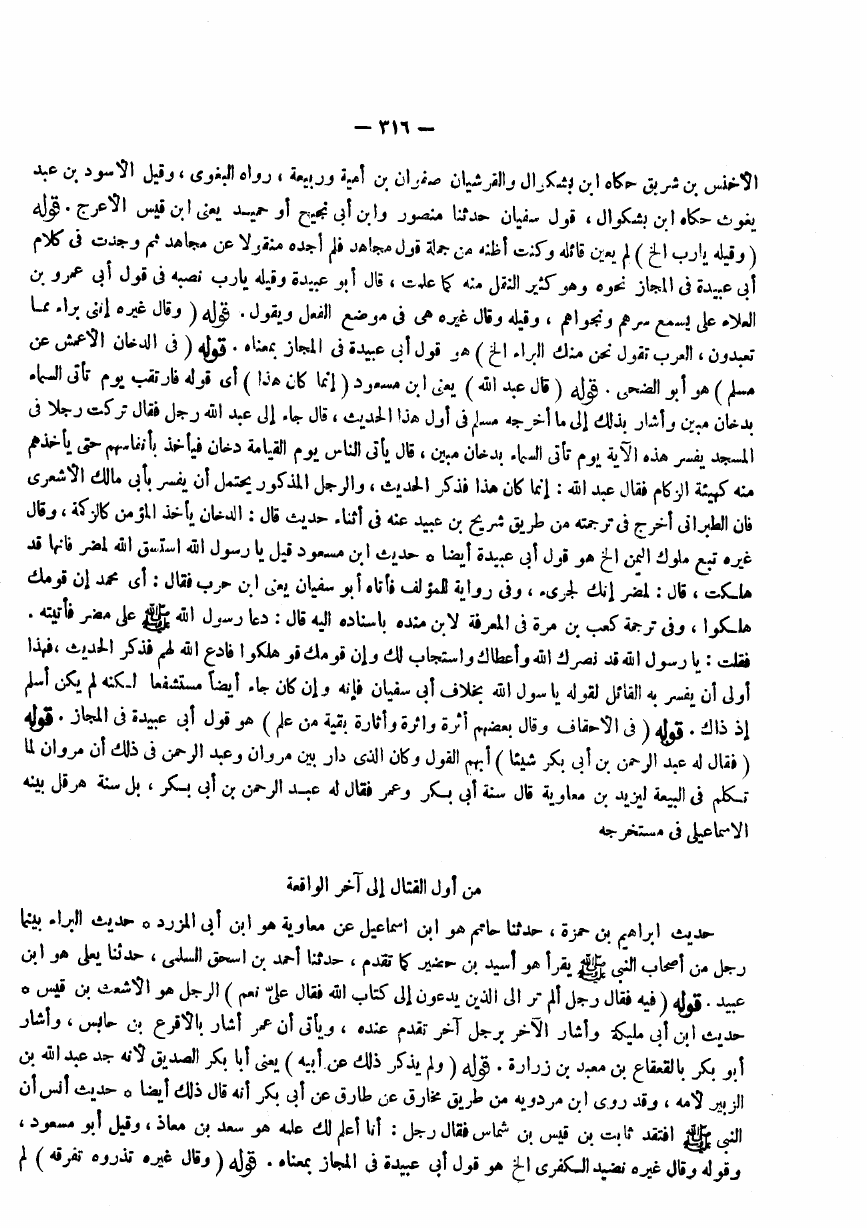 — ٣١٦ —
الأخنس بن شريق حكاه ابن بشكرال والقرشيان صفران بن أمية وربيعة ، رواه البغوى ، وقيل الأسود بن عبد
يغوث حكاه ابن بشكوال ، قول سفيان حدثنا منصور وابن أبى نجيح أو حميد يعنى ابن قيس الأعرج . قوله
( وقيله يارب الخ ) لم يعين قائله وكنت أظنه من جملة قول مجاهد فلم أجده منقولا عن مجاهد ثم وجدت فى كلام
أبى عبيدة فى المجاز نحوه وهو كثير النقل منه كما علمت ، قال أبو عبيدة وقيله يارب نصبه فى قول أبى عمرو بن
العلاء على يسمع سرهم ونجواهم ، وقيله وقال غيره هى فى موضع الفعل ويقول . قوله ( وقال غيره إننى براء مما
تعبدون ، العرب تقول نحن منك البراء الخ ) هو قول أبى عبيدة فى المجاز بمعناه . قوله ( فى الدخان الأعمش عن
مسلم ) هو أبو الضحى . قوله ( قال عبد الله ) يعنى ابن مسعود ( إنما كان هذا ) أى قوله فارتقب يوم تأتى السماء
بدخان مبين وأشار بذلك إلى ما أخرجه مسلم فى أول هذا الحديث ، قال جاء إلى عبد الله رجل فقال تركت رجلا فى
المسجد يفسر هذه الآية يوم تأتى السماء بدخان مبين ، قال يأتى الناس يوم القيامة دخان فيأخذ بأنفاسهم حتى يأخذهم
منه كهيئة الزكام فقال عبد الله : إنما كان هذا فذكر الحديث ، والرجل المذكور يحتمل أن يفسر بأبى مالك الأشعرى
فان الطبرانى أخرج فى ترجمته من طريق شريح بن عبيد عنه فى أثناء حديث قال : الدخان يأخذ المؤمن كالزكمة ، وقال
غيره تبع ملوك اليمن الخ هو قول أبى عبيدة أيضا ٥ حديث ابن مسعود قيل يا رسول الله استسق الله لمضر فانها قد
هلكت ، قال : لمضر إنك لجرىء ، وفى رواية للمؤلف فأتاه أبو سفيان يعنى ابن حرب فقال : أى محمد إن قومك
هلكوا ، وفى ترجمة كعب بن مرة فى المعرفة لابن منده باسناده اليه قال : دعا رسول الله ﷺ على مضر فأتيته .
فقلت : يا رسول الله قد نصرك الله وأعطاك واستجاب لك وإن قومك قو هلكوا فادع الله لهم فذكر الحديث ، فهذا
أولى أن يفسر به القائل لقوله يا سول الله بخلاف أبى سفيان فإنه وإن كان جاء أيضاً مستشفعا لكنه لم يكن أسلم
إذ ذاك . قوله ( فى الاحقاف وقال بعضهم أثرة واثرة وأثارة بقية من علم ) هو قول أبى عبيدة فى المجاز . قوله
( فقال له عبد الرحمن بن أبى بكر شيئا ) أبهم القول وكان الذى دار بين مروان وعبد الرحمن فى ذلك أن مروان لما
تكلم فى البيعة ليزيد بن معاوية قال سنة أبى بكر وعمر فقال له عبد الرحمن بن أبى بكر ، بل سنة هرقل بينه
الاسماعيلى فى مستخرجه
من أول القتال إلى آخر الواقعة
حديث ابراهيم بن حمزة ، حدثنا حاتم هو ابن اسماعيل عن معاوية هو ابن أبى المزرد ٥ حديث البراء بينما
رجل من أصحاب النبى ﷺ يقرأ هو أسيد بن حضير كما تقدم ، حدثنا أحمد بن اسحق السلمى ، حدثنا يعلى هو ابن
عبيد . قوله ( فيه فقال رجل ألم تر الى الذين يدعون إلى كتاب الله فقال علىّ نعم ) الرجل هو الأشعث بن قيس ٥
حديث ابن أبى مليكة وأشار الآخر برجل آخر تقدم عنده ، ويأتى أن عمر أشار بالاقرع بن حابس ، وأشار
أبو بكر بالقعقاع بن معبد بن زرارة . قوله ( ولم يذكر ذلك عن أبيه ) يعنى أبا بكر الصديق لأنه جد عبد الله بن
الزبير لأمه ، وقد روى ابن مردويه من طريق مخارق عن طارق عن أبى بكر أنه قال ذلك أيضا ٥ حديث أنس أن
النبى ﷺ افتقد ثابت بن قيس بن شماس فقال رجل : أنا أعلم لك علمه هو سعد بن معاذ ، وقيل أبو مسعود ،
وقوله وقال غيره نضيد الكفرى الخ هو قول أبى عبيدة فى المجاز بمعناه . قوله ( وقال غيره تذروه تفرقه ) لم